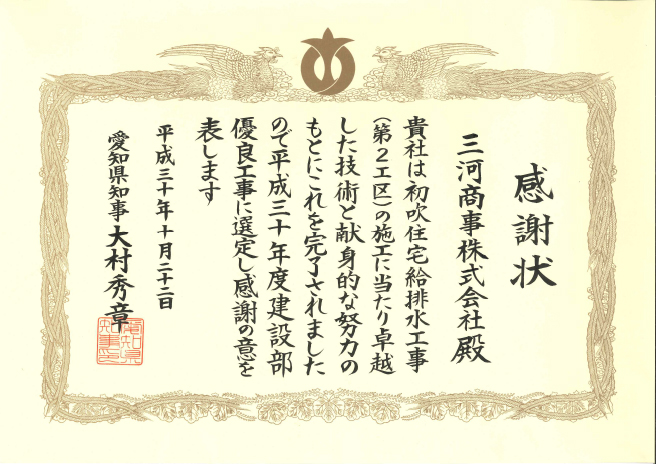 感謝状
三河商事株式会社殿
貴社は初吹住宅給排水工事
(第2工区)の施工に当たり卓越
した技術と献身的な努力の
もとにこれを完了されました
ので平成三十年度建設部
優良工事に選定し感謝の意を
表します
平成三十年十月二十二日
愛知県知事大村秀章